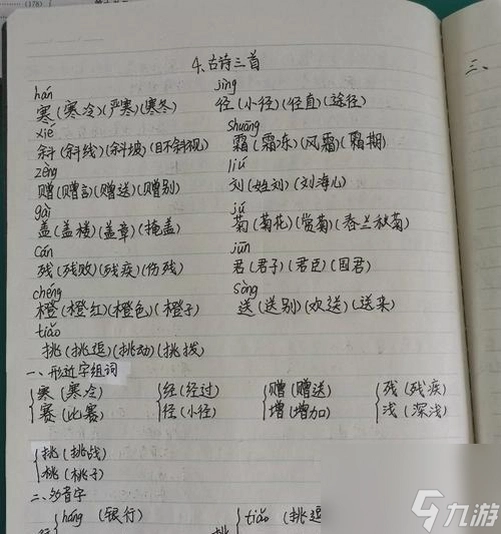 (178)
4.古诗三首
hán jìng
寒(寒冷)(严寒)(寒冬) 径(小径)(径直)(途径)
xié shuāng
斜(斜线)(斜坡)(目不斜视) 霜(霜冻)(风霜)(霜期)
zèng liú
赠(赠言)(赠送)(赠别) 刘(姓刘)(刘海儿)
gài jú
盖(盖楼)(盖章)(掩盖) 菊(菊花)(赏菊)(春兰秋菊)
cán jūn
残(残败)(残疾)(伤残) 君(君子)(君臣)(国君)
chéng sòng
橙(橙红)(橙色)(橙子) 送(送别)(欢送)(送来)
tiǎo
挑(挑逗)(挑动)(挑拨)
一、形近字组词
寒(寒冷) 经(经过) 赠(赠送) 残(残疾)
赛(比赛) 径(小径) 增(增加) 浅(深浅)
挑(挑战)
桃(桃子)
二、多音字
háng(银行) tiǎo(挑逗
行 挑
三、
九游